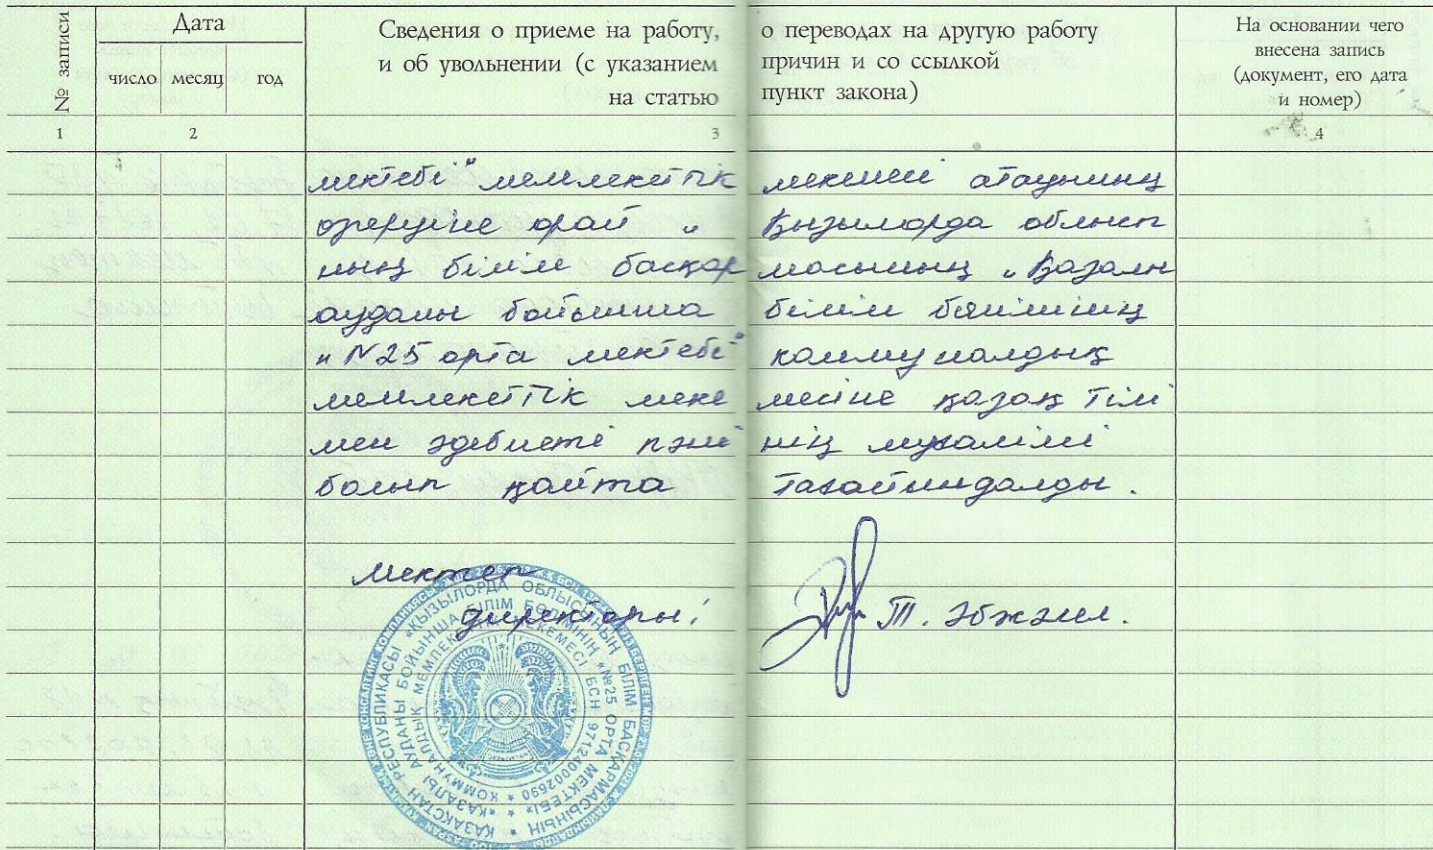 № записи
Дата
число месяц год
Сведения о приеме на работу, о переводах на другую работу
и об увольнении (с указанием причин и со ссылкой
на статью пункт закона)
На основании чего
внесена запись
(документ, его дата
и номер)
1 2 3 4
мектебі" мемлекеттік мекемесі атауының
өзеруіне орай „ Қызылорда облысы
ның білім басқар масының „Қазалы
ауданы бойынша білім бөлімінің
„№25 орта мектебі" коммуналдық
мемлекеттік меке месіне қазақ тілі
мен әдебиеті пәні нің мұғалімі
болып қайта тағайындалды.
Мектеп
директоры: Т. Әбжәли.
ҚАЗАҚСТАН РЕСПУБЛИКАСЫ «ҚЫЗЫЛОРДА ОБЛЫСЫНЫҢ БІЛІМ БАСҚАРМАСЫНЫҢ
«ҚАЗАЛЫ АУДАНЫ БОЙЫНША БІЛІМ БӨЛІМІНІҢ «№25 ОРТА МЕКТЕБІ»
КОММУНАЛДЫҚ МЕМЛЕКЕТТІК МЕКЕМЕСІ БСН 971240002690